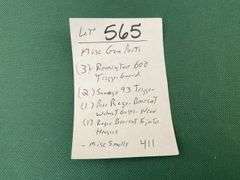 Lot 565
Misc Gun Parts
(3) Remington 600
Trigger Guard
(2) Savage 93 Trigger
(1) Ruger Bearcat
Walnut Grips - Wood
(1) Ruger Bearcat Ejector
Housing
- Misc Smalls 411